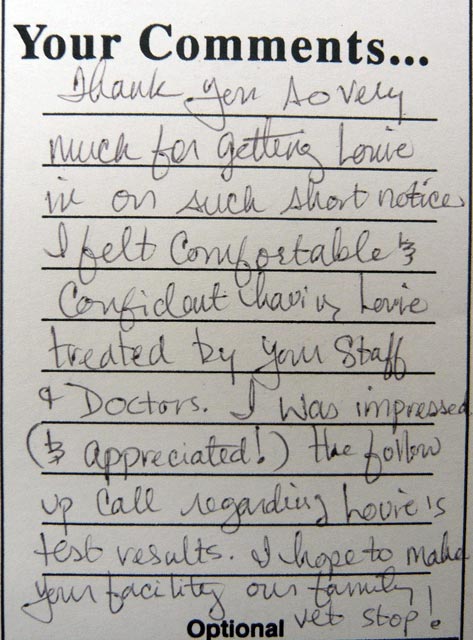 Your Comments...
Thank you so very
much for getting Louie
in on such short notice
I felt Comfortable &
Confident having Louie
treated by your Staff
& Doctors. I was impressed
(& appreciated!) the follow
up call regarding Louie's
test results. I hope to make
your facility our family
vet stop!
Optional